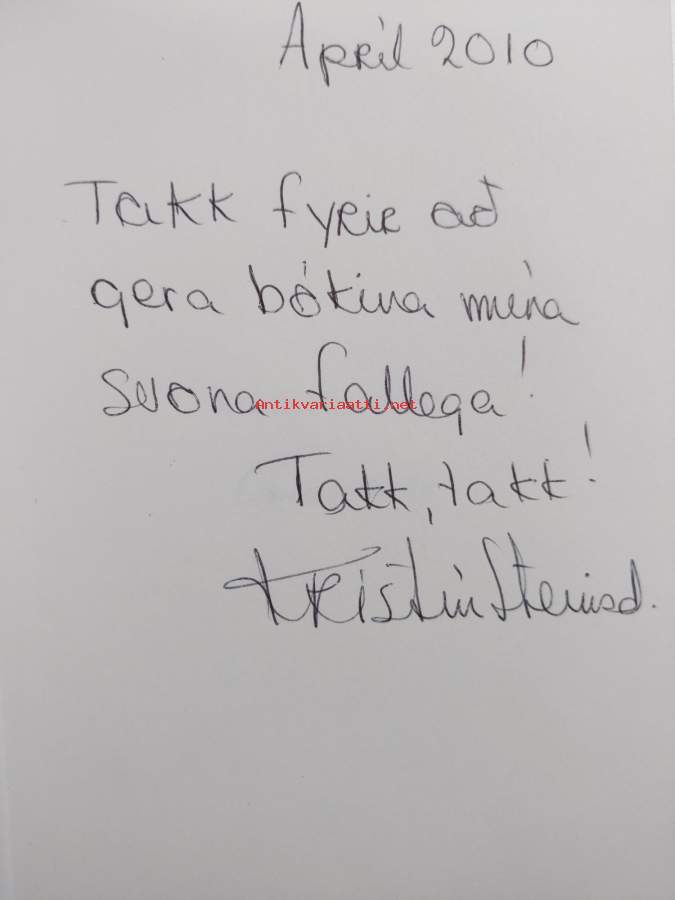 Apríl 2010
Takk fyrir að
gera bókina mína
svona fallega!
Antikvariaatti.net
Takk, takk!
Kristín Steinsd.